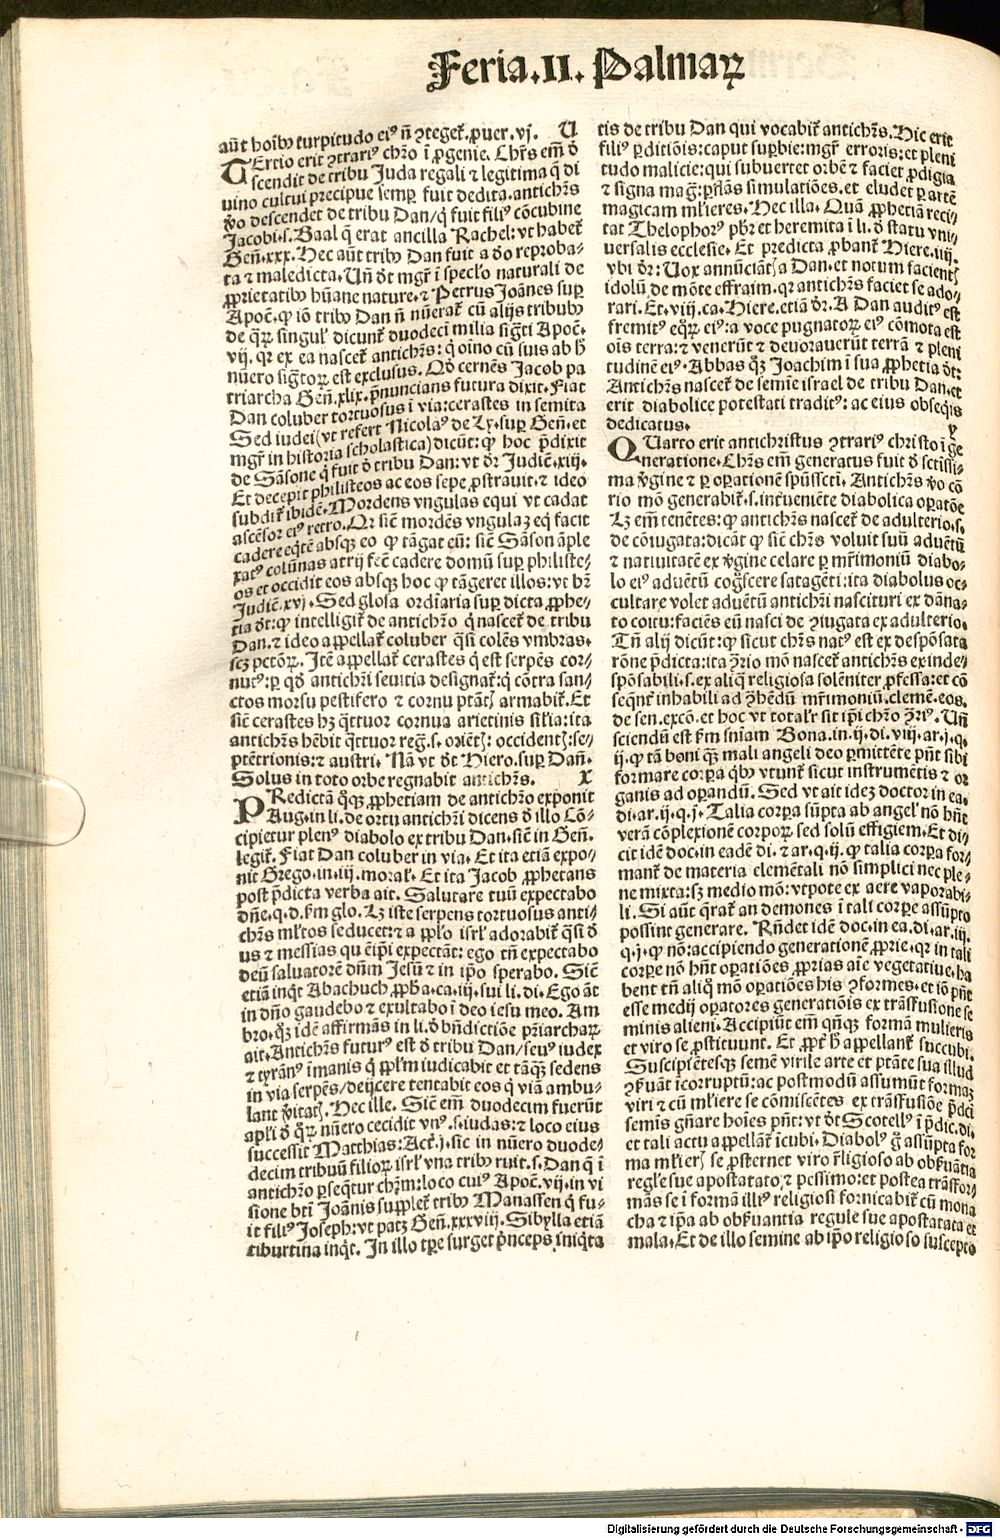 Feria.II. Palmaꝝ
aūt hoībꝰ turpitudo eiꝰ nō ꝯteget᷑.ꝓuer.vj. U
TErtio erit ꝯtrariꝰ chr̄o ī ꝓgenie. Chr̄s em̄ ō
scendit de tribu Juda regali ⁊ legitima q̄ di
uino cultui precipue semꝑ fuit dedita.antichr̄s
ꝟo descendet de tribu Dan/q̄ fuit filiꝰ cōcubine
Jacobi.s.Baal q̄ erat ancilla Rachel: vt habet᷑
Geñ.xxx.Hec aūt tribꝰ Dan fuit a ďo reproba-
ta ⁊ maledicta. Uñ ďt mgr̄ ī speclo naturali de
ꝓprietatibꝰ hūane nature.⁊ Petrus Joānes suꝑ
Apoc̄.ꝙ iō tribꝰ Dan ñ nūerat᷑ cū alijs tribubꝰ
de qꝝ singul' dicunt᷑ duodeci milia sigti Apoc̄.
vij. qꝛ ex ea nascet᷑ antichr̄s: q̄ oīno cū suis ab h̄
nūero sigtoꝝ est exclusus. Qō cernēs Jacob pa
triarcha Geñ.xlix.p̄nuncians futura dixit. Fiat
Dan coluber tortuosus ī via:cerastes in semita
Sed iudei(vt refert Nicolaꝰ de Ly.suꝑ Geñ.et
mgr̄ in historia scholastica)dicūt: ꝙ hoc p̄dixit
de Sāsone q̄ fuit ō tribu Dan: vt ďr Judic̄.xiij.
Et decepit philisteos ac eos sepe ꝓstrauit.⁊ ideo
subdit᷑ ibidē.Mordens vngulas equi vt cadat
ascēsor eiꝰ retro.Qꝛ sic̄ mordēs vngulaꝫ eq̄ facit
cadere eq̄tē absqꝫ eo ꝙ tāgat eū: sic̄ Sāson āple
xatꝰ colūnas atrij fec̄ cadere domū suꝑ philiste-
os et occidit eos absqꝫ hoc ꝙ tāgeret illos: vt hr̄
Judic̄.xvj.Sed glosa ordīaria suꝑ dicta ꝓphe-
tia ďt: ꝙ intelligit᷑ de antichr̄o q̄ nascet᷑ de tribu
Dan.⁊ ideo appellat᷑ coluber q̄si colēs vmbras.
scꝫ pctōꝝ. Jtē appellat᷑ cerastes q̄ est serpēs cor-
nutꝰ:ꝑ qō antichr̄i seuitia designat᷑:q̄ cōtra san-
ctos morsu pestifero ⁊ cornu ptāt͛ armabit᷑. Et
sic̄ cerastes hꝫ q̄ttuor cornua arietinis sil'ia:ita
antichr̄s hēbit q̄ttuor reḡ.s. oriēt͛: occident͛:se-
ptētrionis:⁊ austri. Nā vt ďt Hiero.suꝑ Dañ.
Solus in toto orbe regnabit antichr̄s. X
PRedictā qꝫ ꝓphetiam de antichr̄o exponit
Aug.in li.de ortu antichr̄i dicens ō illo Cō-
cipietur plenꝰ diabolo ex tribu Dan.sic̄ in Geñ.
legit᷑. Fiat Dan coluber in via. Et ita etiā expo-
nit Grego.in.iij.moral'. Et ita Jacob ꝓphetans
post p̄dicta verba ait. Salutare tuū expectabo
dñe.q.d.fm glo. Lꝫ iste serpens tortuosus anti-
chr̄s ml'tos seducet:⁊ a pplo isrl' adorabit᷑ q̄si ō
us ⁊ messias quē ipi expectāt: ego tñ expectabo
deū saluatorē dñm Jesū ⁊ in ipo sperabo. Sic̄
etiā inqt Abachuch ꝓpha.ca.iij.sui li.di.Ego āt
in dño gaudebo ⁊ exultabo ī deo iesu meo. Am
bro.qꝫ idē affirmās in li.ō bn̄dictiōe pr̄iarchaꝝ
ait.Antichr̄s futurꝰ est ō tribu Dan/seuꝰ iudex
⁊ tyrānꝰ īmanis q̄ pplm iudicabit et tāqꝫ sedens
in via serpēs/deijcere tentabit eos q̄ viā ambu-
lant ꝟitat͛.Hec ille. Sic̄ em̄ duodecim fuerūt
apl'i ō qꝝ nūero cecidit vnꝰ.s.iudas:⁊ loco eius
successit Matthias:Act᷑.j.sic in nūero duode-
decim tribuū filioꝝ isrl' vna tribꝰ ruit.s.Dan q̄ ī
antichr̄o ꝑseq̄tur chr̄m:loco cuiꝰ Apoc̄.vij.in vi
sione bti Joānis supplet᷑ tribꝰ Manassen q̄ fu-
it filiꝰ Joseph:vt patꝫ Geñ.xxxviij.Sibylla etiā
tiburtina inqt. In illo tp̄e surget p̄nceps īniq̄ta
tis de tribu Dan qui vocabit᷑ antichr̄s. Hic erit
filiꝰ ꝑditiōnis:caput suꝑbie:mgr̄ erroris:et pleni
tudo malicie:qui subuertet orbē ⁊ faciet ꝓdigia
⁊ signa mag̃:ꝑ fl'as simulatiōes.et eludet ꝑ artē
magicam ml'ieres. Hec illa. Quā ꝓphetiā reci-
tat Thelophorꝰ pbr̄ et heremita ī li.ō statu vni-
uersalis ecclesie. Et predicta ꝓbant᷑ Hiere.iiij.
vbi ďr: Uox annūciāt͛ a Dan.et notum facient͛
idolū de mōte effraim.qꝛ antichr̄s faciet se ado-
rari. Et.viij.ca.Hiere.etiā ďr. A Dan auditꝰ est
fremitꝰ eqꝝ eiꝰ:a voce pugnatoꝝ eiꝰ cōmota est
oīs terra:⁊ venerūt ⁊ deuorauerūt terrā ⁊ pleni
tudinē eiꝰ. Abbas qꝫ Joachim ī sua ꝓphetia ďt:
Antichr̄s nascet᷑ de semīe israel de tribu Dan.et
erit diabolice potestati traditꝰ: ac eius obseqijs
dedicatus. y
QUarto erit antichristus ꝯtrariꝰ christo ī ge
neratione.Chr̄s em̄ generatus fuit ō sctissi-
ma ꝟgine ⁊ ꝑ oꝑationē spūsscti. Antichr̄s ꝟo cō
rio mō generabit᷑.s.int᷑ueniēte diabolica oꝑatōe
Lꝫ em̄ tenētes: ꝙ antichr̄s nascet᷑ de adulterio.s.
de cōiugata:dicāt ꝙ sic̄ chr̄s voluit suū aduētū
⁊ natiuitatē ex ꝟgine celare ꝑ mr̄imoniū diabo-
lo eiꝰ aduētū cog̃scere satagēti:ita diabolus oc-
cultare volet aduētū antichr̄i nascituri ex dāna-
to coitu:faciēs eū nasci de ꝯiugata ex adulterio.
Tñ alij dicūt: ꝙ sicut chr̄s natꝰ est ex despōsata
rōne p̄dicta:ita ꝯrio mō nascet᷑ antichr̄s ex inde-
spōsabili.s.ex aliq̄ religiosa solēniter ꝓfessa:et cō
seq̄nt᷑ inhabili ad ꝯhēdū mr̄imoniū.clemē.eos.
de sen.excō.et hoc vt total'r sit ipi chr̄o ꝯriꝰ. Uñ
sciendū est fm sniam Bona.in.ij.di.viij.ar.j.q.
ij.ꝙ tā boni qꝫ mali angeli deo ꝑmittēte pn̄t sibi
formare corꝑa q̄bꝰ vtunt᷑ sicut instrumētis ⁊ or
ganis ad oꝑandū. Sed vt ait ideꝫ doctor in ea.
di.ar.ij.q.j.Talia corꝑa sūpta ab angel' nō hn̄t
verā cōplexionē corpoꝝ sed solū effigiem.Et di-
cit idē doc.in eadē di.⁊ ar.q.ij.ꝙ talia corꝑa for-
mant᷑ de materia elemētali nō simplici nec ple-
ne mixta:sꝫ medio mō: vtpote ex aere vaporabi-
li. Si aūt q̄rat᷑ an demones ī tali corꝑe assūpto
possint generare. Rn̄det idē doc.in ea.di.ar.iij.
q.j.ꝙ nō:accipiendo generationē ꝓprie.qꝛ in tali
corꝑe nō hn̄t oꝑatiōes ꝓprias aīe vegetatiue.ha
bent tñ aliq̄ mō oꝑatiōes his ꝯformes.et iō pn̄t
esse medij oꝑatores generatiōis ex trāsfusione se
minis alieni. Accipiūt em̄ qn̄qꝫ formā mulieris
et viro se ꝓstituunt. Et ꝓpt᷑ h̄ appellant᷑ succubi.
Suscipiētesqꝫ semē virile arte et ptāte sua illud
ꝯẜuāt īcorruptū:ac postmodū assumūt formaꝫ
viri ⁊ cū ml'iere se cōmiscētes ex trāsfusiōe p̄dci
semis gn̄are hoīes pn̄t: vt ďt Scotellꝰ ī p̄dic.di.
et tali actu appellāt᷑ īcubi. Diabolꝰ g̊ assūpta for
ma ml'ier͛ se ꝓsternet viro r̄ligioso ab obẜuātia
regl'e sue apostatato/⁊ pessimo:et postea trāsfor-
mās se ī formā illiꝰ religiosi fornicabit᷑ cū mona
cha ⁊ ipa ab obẜuantia regule sue apostatata et
mala. Et de illo semine ab ipo religioso suscepto
Digitalisierung gefördert durch die Deutsche Forschungsgemeinschaft - DFG